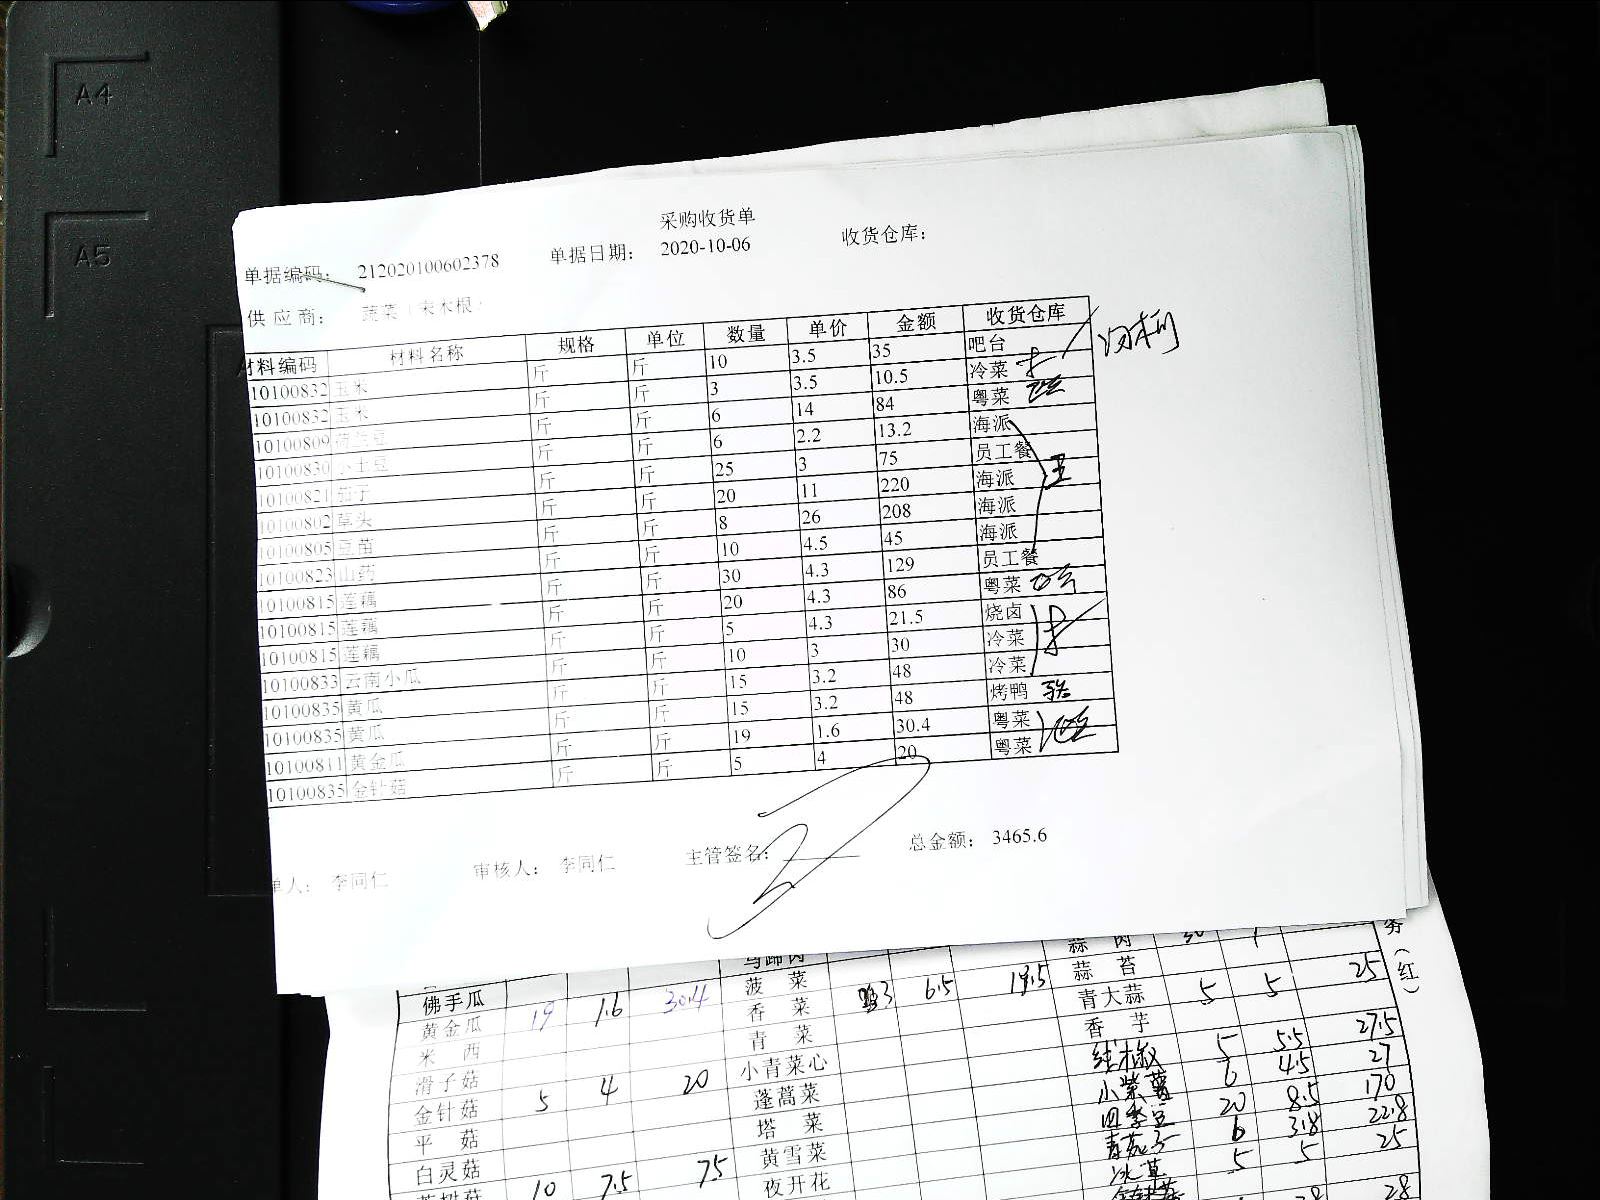 A4
A5
采购收货单
单据编码： 212020100602378 单据日期： 2020-10-06 收货仓库：
供应商： 蔬菜（宋木根）
材料编码 材料名称 规格 单位 数量 单价 金额 收货仓库
10100832 玉米 斤 斤 10 3.5 35 吧台
10100832 玉米 斤 斤 3 3.5 10.5 冷菜
10100809 荷兰豆 斤 斤 6 14 84 粤菜
10100830 小土豆 斤 斤 6 2.2 13.2 海派
10100821 茄子 斤 斤 25 3 75 员工餐
10100802 草头 斤 斤 20 11 220 海派
10100805 豆苗 斤 斤 8 26 208 海派
10100823 山药 斤 斤 10 4.5 45 海派
10100815 莲藕 斤 斤 30 4.3 129 员工餐
10100815 莲藕 斤 斤 20 4.3 86 粤菜
10100815 莲藕 斤 斤 5 4.3 21.5 烧卤
10100833 云南小瓜 斤 斤 10 3 30 冷菜
10100835 黄瓜 斤 斤 15 3.2 48 冷菜
10100835 黄瓜 斤 斤 15 3.2 48 烤鸭
10100811 黄金瓜 斤 斤 19 1.6 30.4 粤菜
10100835 金针菇 斤 斤 5 4 20 粤菜
单人： 李同仁 审核人： 李同仁 主管签名： 总金额： 3465.6
马蹄肉 蒜 肉
佛手瓜 菠 菜 蒜 苔
黄金瓜 19 1.6 30.4 香 菜 3 6.5 19.5 青大蒜 5 5 25
米 西 青 菜 香 芋
滑子菇 小青菜心 5 5.5 27.5
金针菇 5 4 20 蓬蒿菜 小紫薯 6 4.5 27
平 菇 塔 菜 四季豆 20 8.5 170
白灵菇 黄雪菜 6 3.8 22.8
10 7.5 75 夜开花 5 5 25
28
务（红）